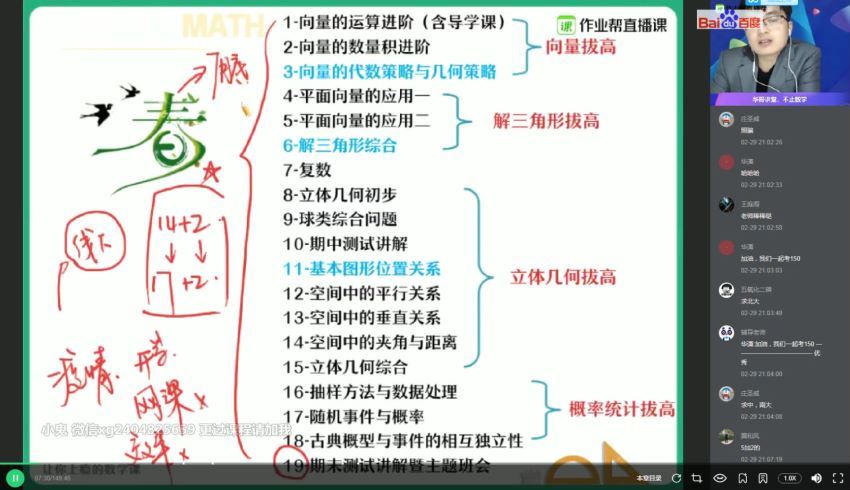 MATH
1-向量的运算进阶（含导学课）
2-向量的数量积进阶
3-向量的代数策略与几何策略
4-平面向量的应用一
5-平面向量的应用二
6-解三角形综合
7-复数
8-立体几何初步
9-球类综合问题
10-期中测试讲解
11-基本图形位置关系
12-空间中的平行关系
13-空间中的垂直关系
14-空间中的夹角与距离
15-立体几何综合
16-抽样方法与数据处理
17-随机事件与概率
18-古典概型与事件的相互独立性
19-期末测试讲解暨主题班会
课 作业帮直播课
向量拔高
解三角形拔高
立体几何拔高
概率统计拔高
春
线下
14+2
17+2
疫情
开学
网课×
效率×
小鬼 微信xg2404825659 正过课程请加我
让你上瘾的数学课
07:30/149:46
Bai百度
华哥讲堂，不止数学
庄圣威
02-29 21:02:26
华演
哈哈哈
02-29 21:02:33
老师棒棒哒
02-29 21:02:50
华演
加油，我们一起考150
02-29 21:03:03
五氧化二磷
求北大
02-29 21:03:49
辅导老师
华演:加油，我们一起考150 —
—————————— 优
秀
02-29 21:04:00
庄圣威
求中，南大
02-29 21:04:08
5加2的
02-29 21:07:19
本章目录
1.0X